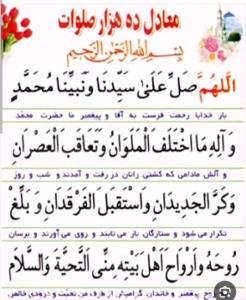 معادل ده هزار صلوات
بِسْمِ اللهِ الرَّحْمٰنِ الرَّحِيْمِ
اَللّٰهُمَّ صَلِّ عَلىٰ سَيِّدِنَا وَنَبِيِّنَا مُحَمَّدٍ
بار خدایا رحمت فرست به آقا و پیغمبر ما حضرت محمّد
وَآلِهِ مَا اخْتَلَفَ الْمَلَوَانُ وَتَعَاقَبَ الْعَصْرَانِ
و آلش مادامی که کشتی رانان در رفت و آمدند و شب و روز
وَكَرَّ الْجَدِيدَانِ وَاسْتَقْبَلَ الْفَرْقَدَانِ وَ بَلِّغْ
تکرار می شود و ستارگان باز می تابند و روی می آورند و برسان
رُوحَهُ وَاَرْوَاحَ اَهْلِ بَيْتِهِ مِنِّى التَّحِيَّةَ وَالسَّلَامَ
روح پیغمبر و خاندان گرامیش از طرف من تحیّت و درودی خالص